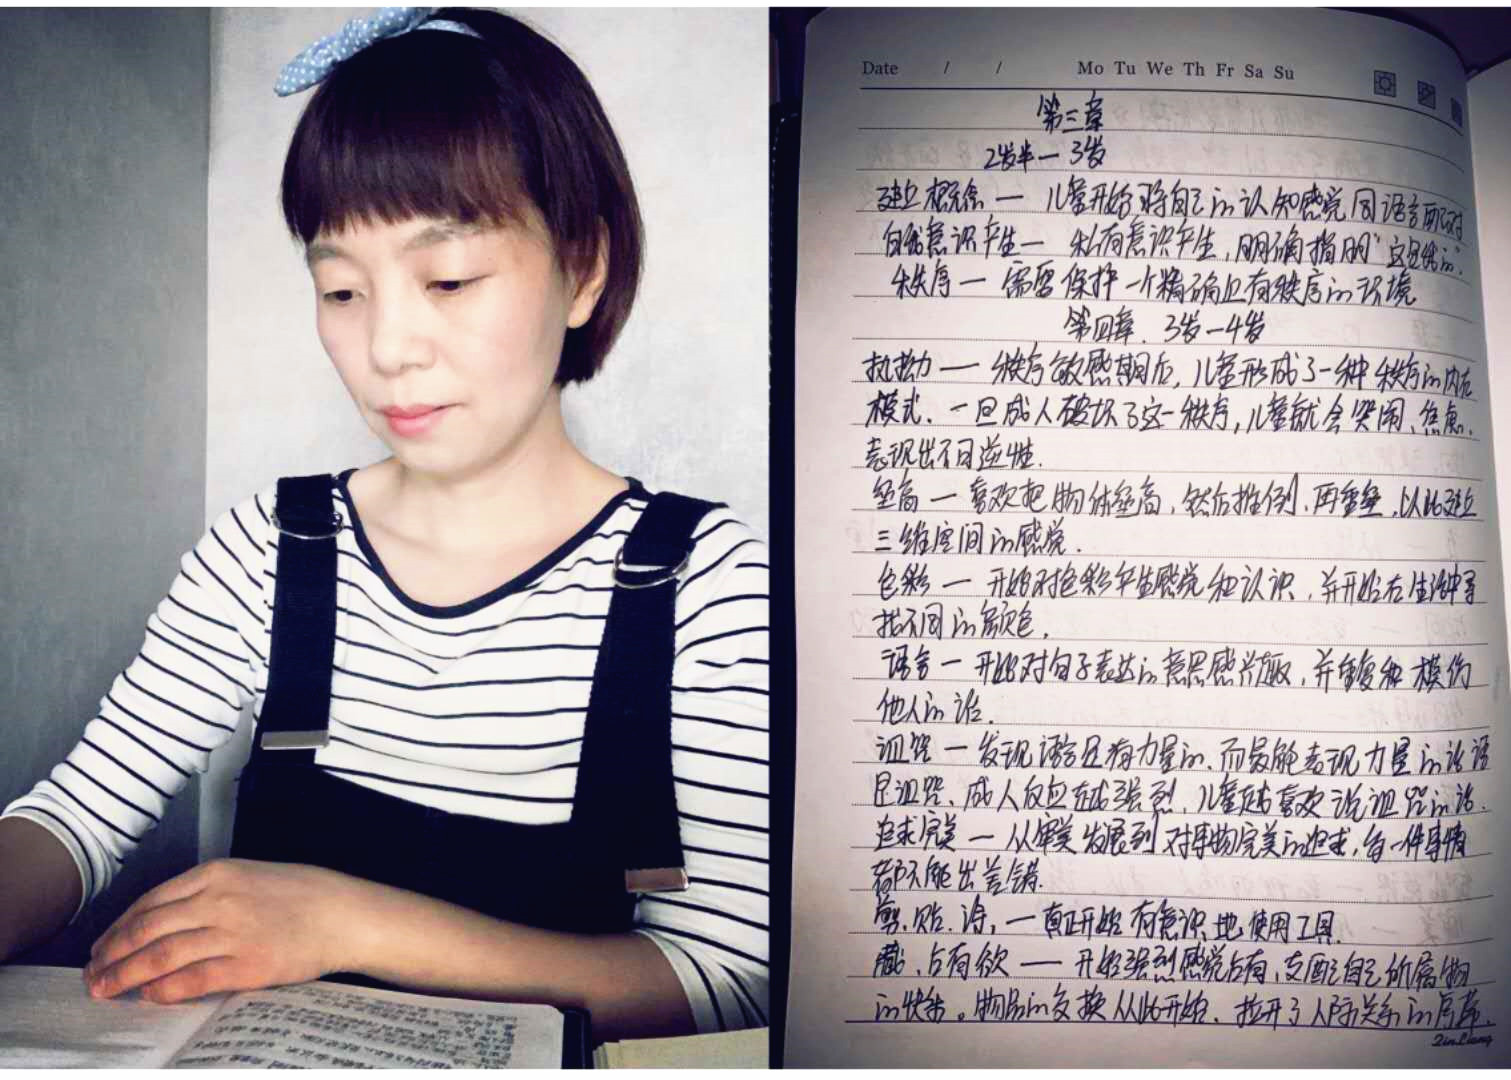 Date / / Mo Tu We Th Fr Sa Su
第三章
2岁半—3岁
建立概念— 儿童开始将自己的认知感觉同语言配对
自我意识产生— 私有意识产生,明确指明"这是我的".
秩序— 需要保护一个精确且有秩序的环境
第四章. 3岁—4岁
执拗— 秩序敏感期后,儿童形成了一种秩序的内在
模式.一旦成人破坏了这一秩序,儿童就会哭闹、焦虑.
表现出不可逆性.
垒高—喜欢把物体垒高,然后推倒.再重垒,以此建立
三维空间的感觉.
色彩—开始对色彩产生感觉和认识,并开始在生活中寻
找不同的颜色.
语言—开始对句子表达的意思感兴趣,并重复和模仿
他人的话.
诅咒—发现语言是有力量的.而最能表现力量的话语
是诅咒、成人反应越强烈.儿童越喜欢说诅咒的话.
追求完美—从审美发展到对事物完美的追求,每一件事情
都不能出差错.
剪.贴.涂,—真正开始有意识地使用工具.
藏、占有欲— 开始强烈感觉占有,支配自己所属物
的快乐。物品的交换从此开始.拉开了人际关系的序幕.